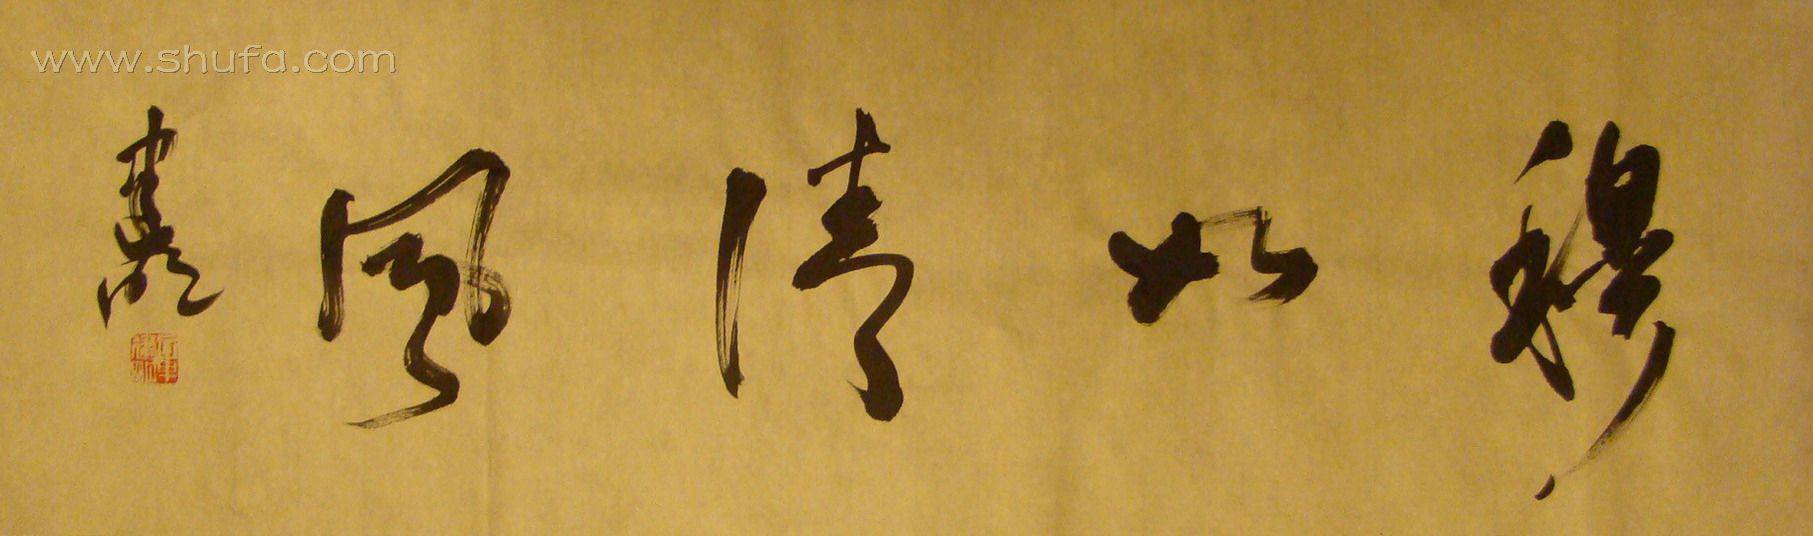 www.shufa.com
穆如清风